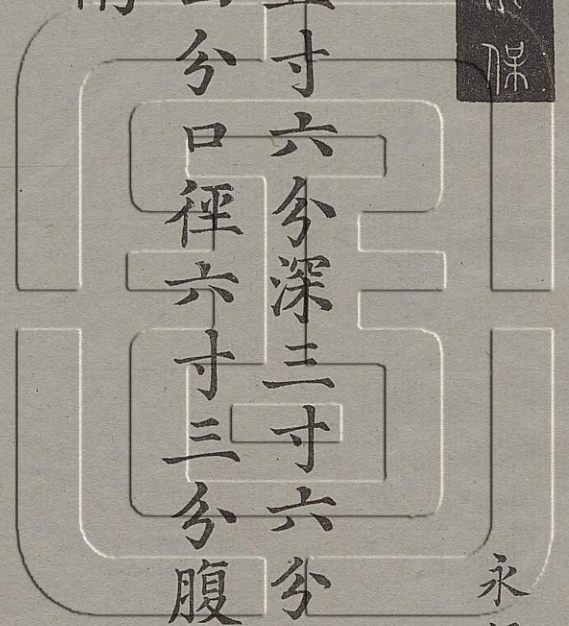 保
永
寸六分深三寸六分
分口徑六寸三分腹